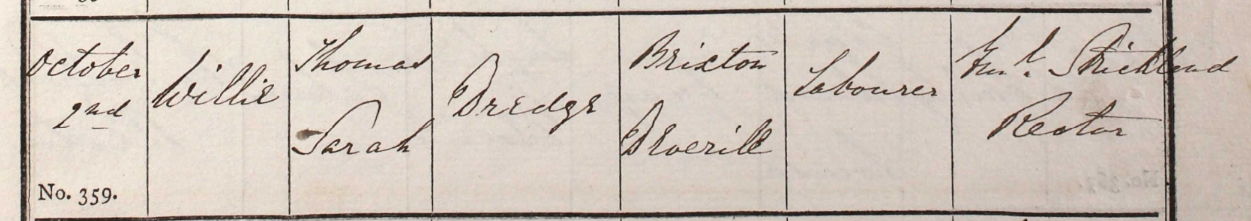 October
2nd
No. 359.
Willie
Thomas
Sarah
Dredge
Brixton
Deverill
Labourer
Strickland
Rector